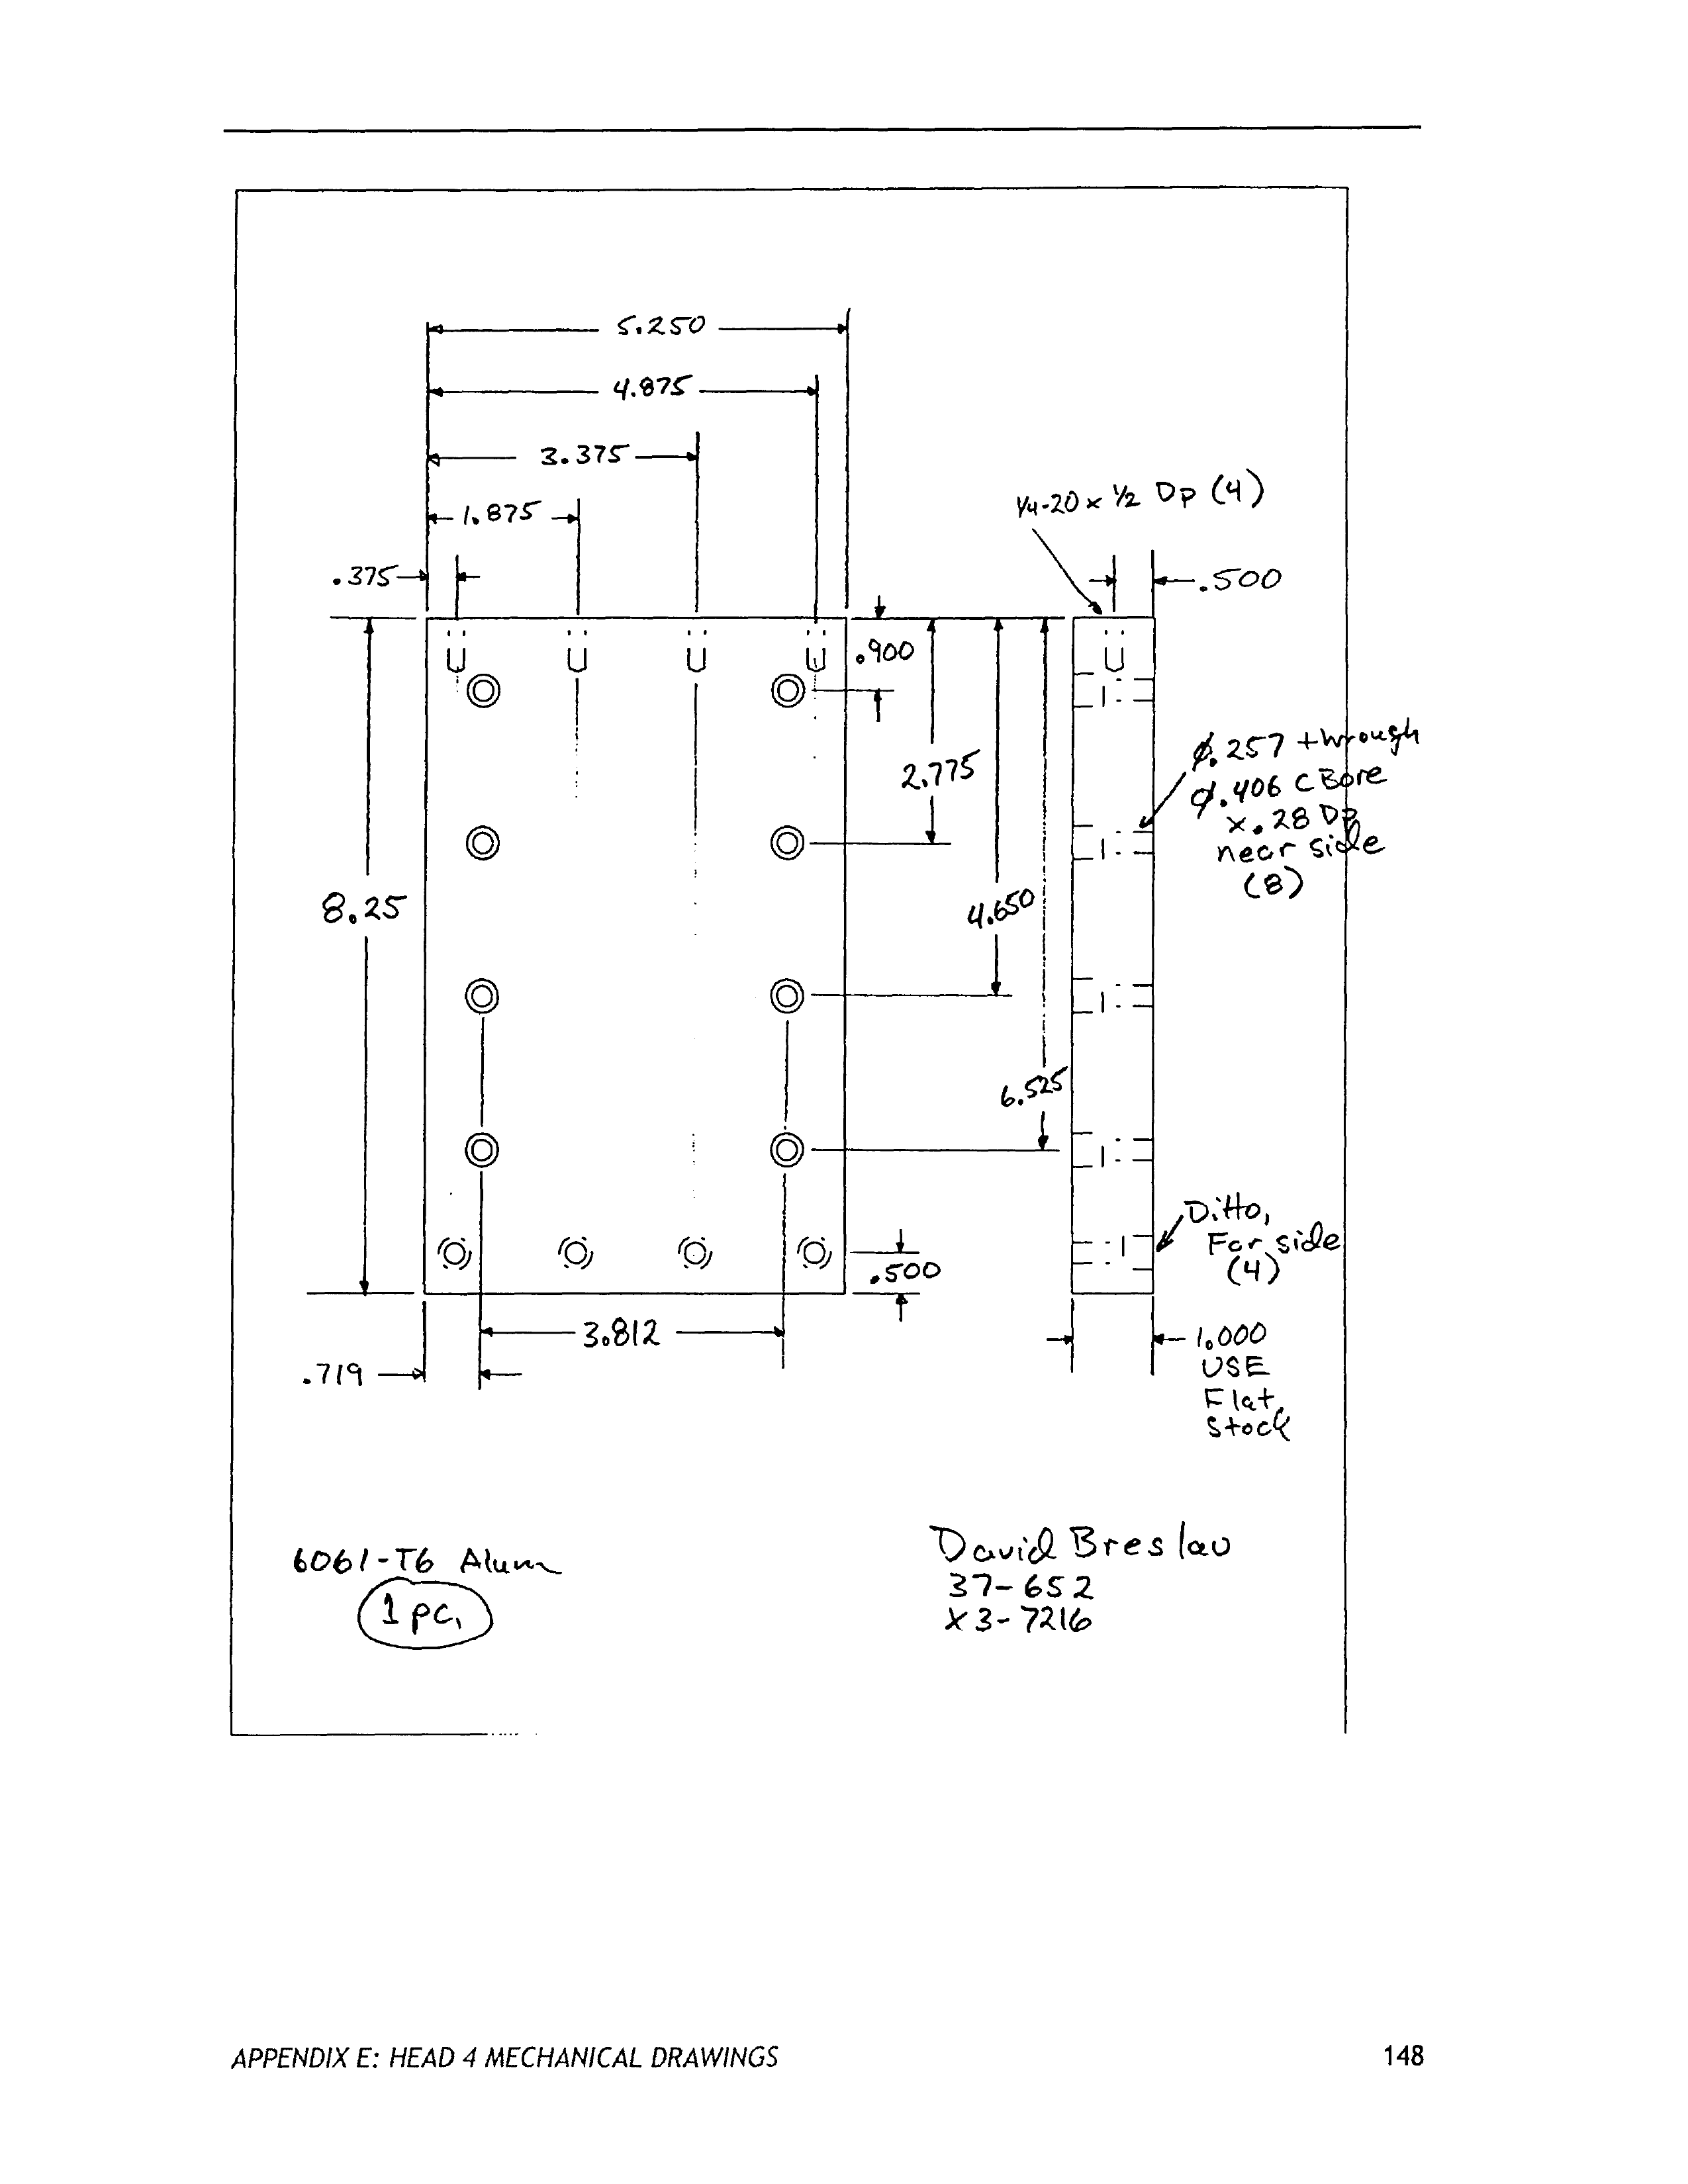 5.250
4.875
3.375
1.875
.375
1/4-20 x 1/2 Dp (4)
.500
.900
2.775
Ø.257 through
Ø.406 CBore
x .28 Dp
near side
(8)
8.25
4.650
6.525
Ditto,
Far side
(4)
.500
3.812
.719
1.000
USE
Flat
Stock
6061-T6 Alum
1 pc.
David Breslau
37-652
X3-7216
APPENDIX E: HEAD 4 MECHANICAL DRAWINGS 148